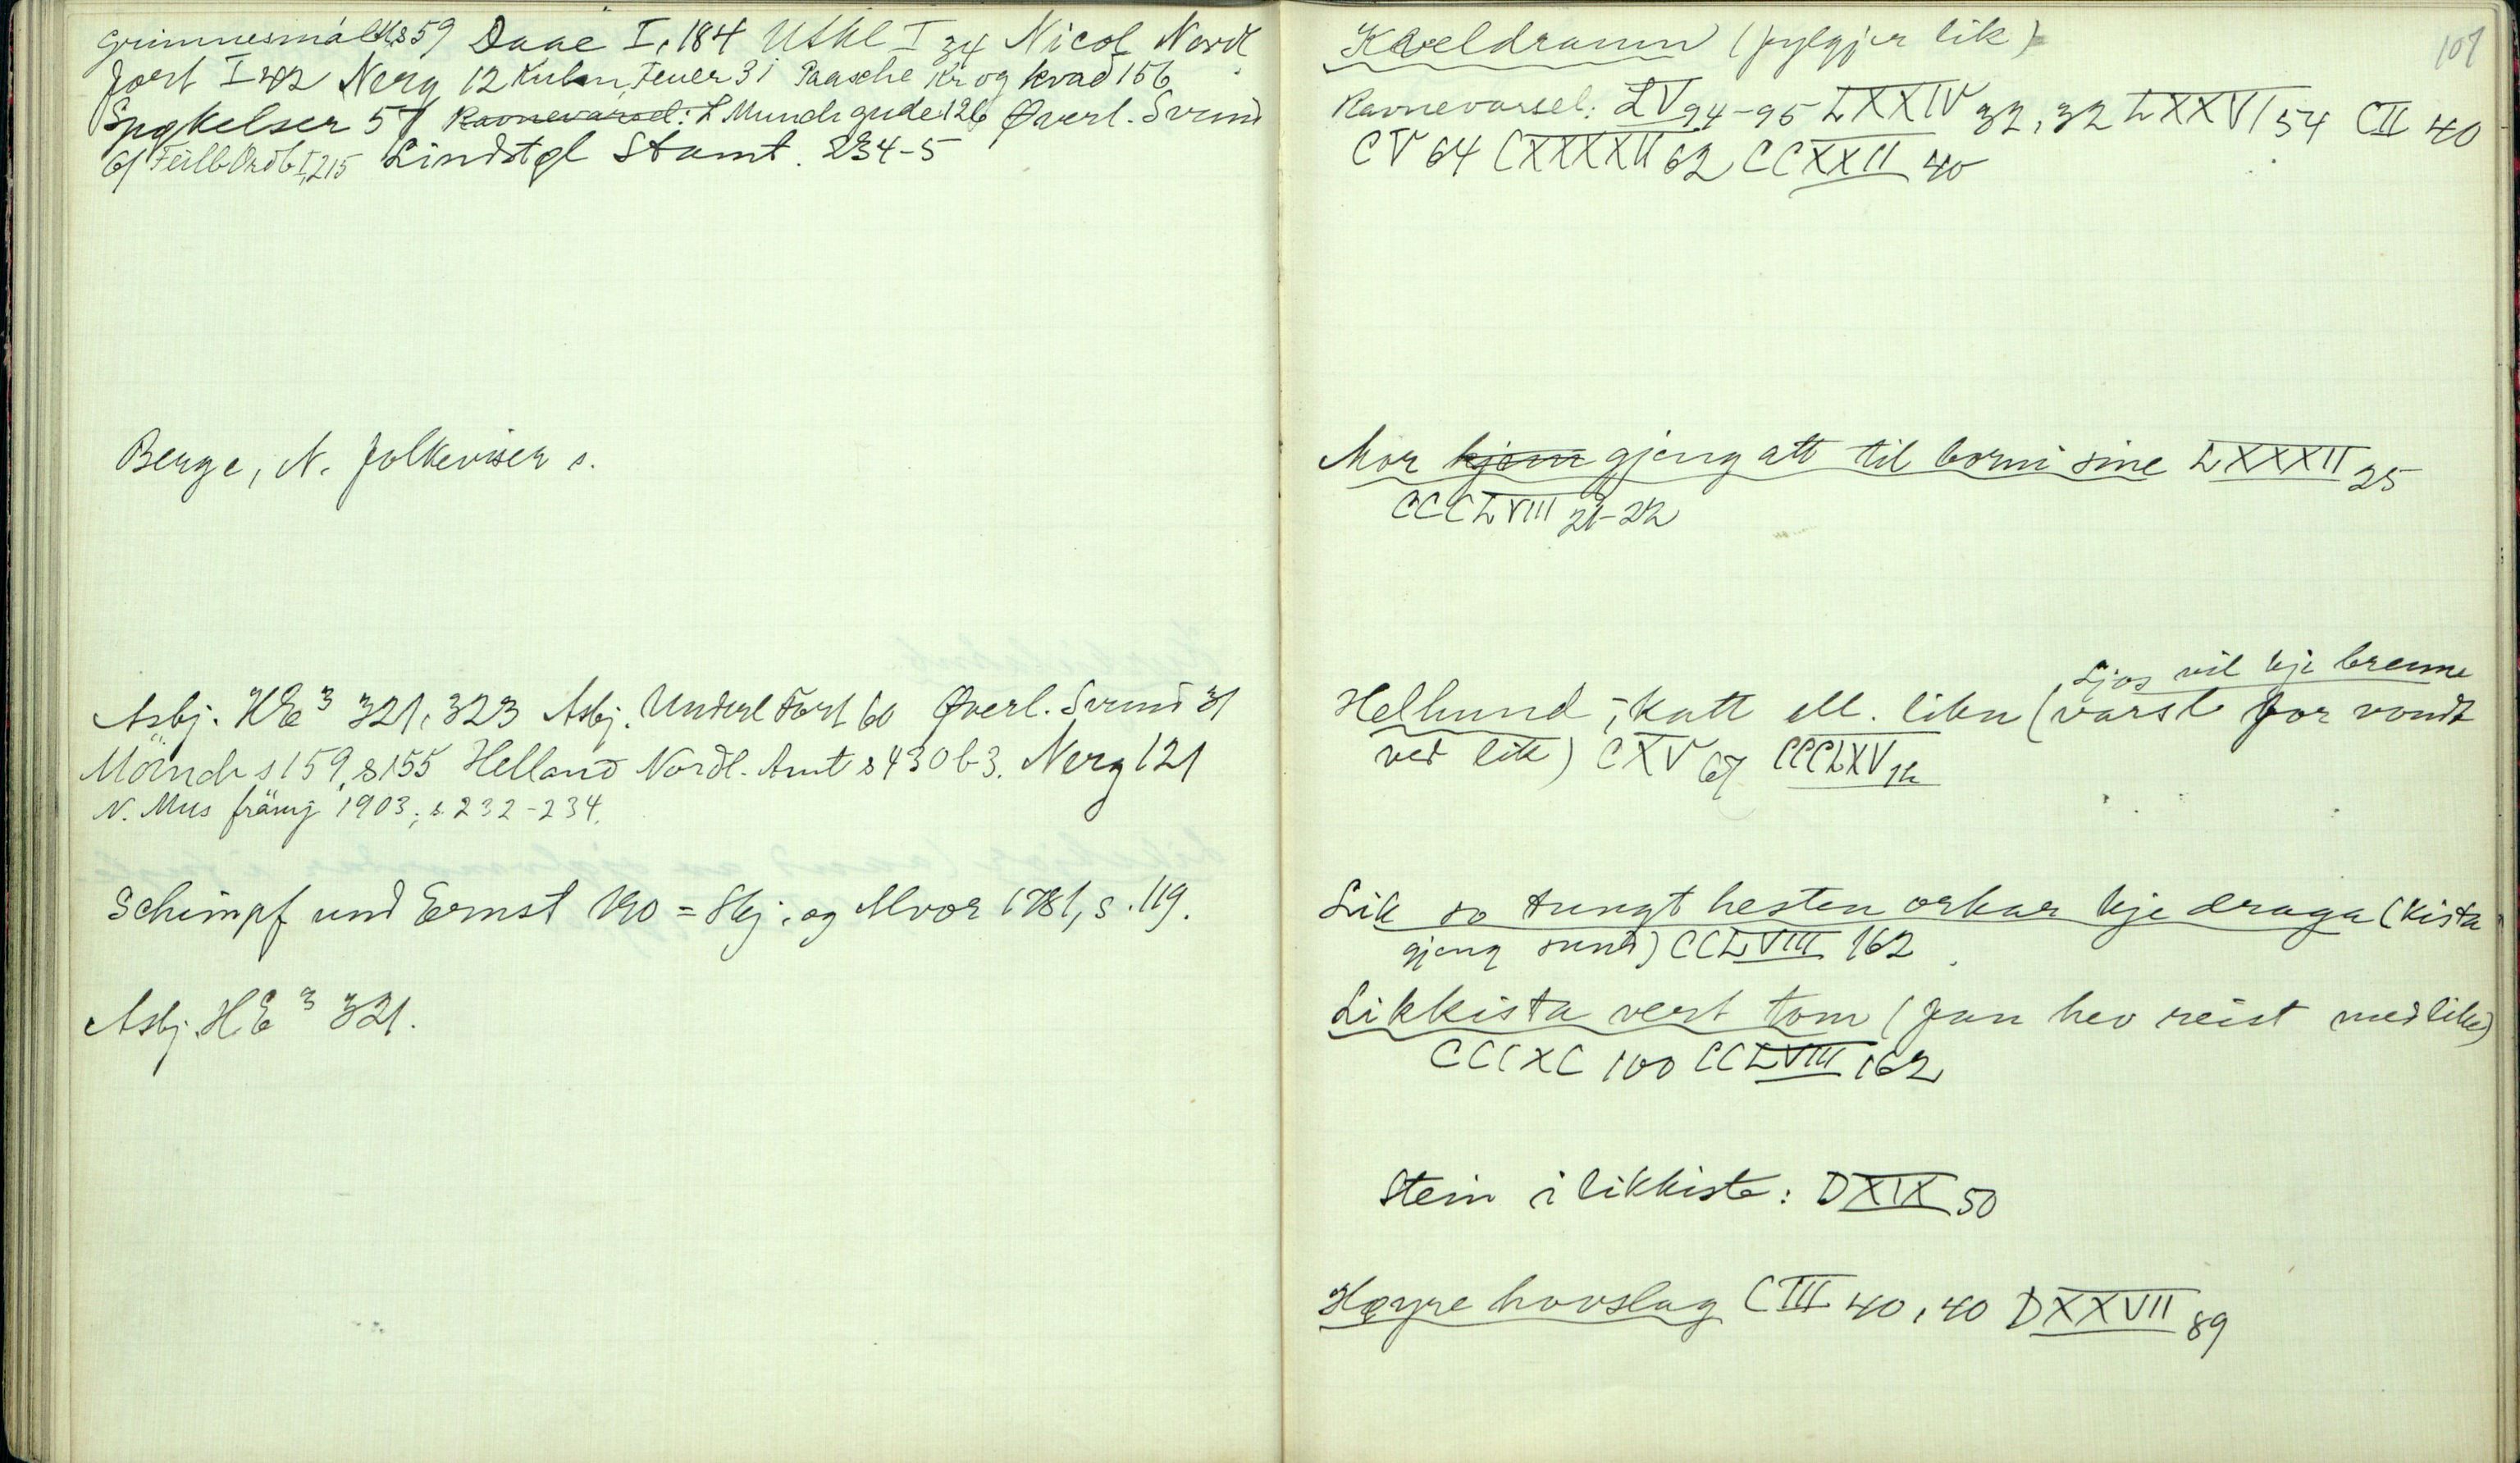 Grimnesmál s 59 Daae I, 184 Utkl I 34 Nicol Nordl.
fort I 42 Nerg 12 Kuhn, Feuer 31 Paasche Kr og kvad 156
Spøkelser 57 Ravnevarsel: L Munch gude 126 Øverl. Svund
61 Feilb Ordb I, 215 Lindstøl Stamt. 234-5
Berge, N. folkeviser s.
Asbj. HE³ 321, 323 Asbj. Underl Fort 60 Øverl. Svund 31
s 159, s 155 Helland Nordl. Amt s 430 b 3. Nerg 121
N. Mus 1903, s. 232-234.
Schimpf und Ernst 190 = Skj. og Alvor 1781, s. 119.
Asbj. HE³ 321.
107
Kveldramn (fylgjer lik)
Ravnevarsel: LV 94-95 LXXIV 32, 32 LXXVI 54 CII 40
CV 64 CXXXXII 62 CCXXII 40
Mor kjem gjeng att til borni sine LXXXII 25
CCCLVIII 21-22
Ljos vil kje brenne
Helhund, katt ell. likn (varsl for vondt
ved lik) CXV 67 CCCLXV 12
Lik so tungt hesten orkar kje draga (Kista
gjeng sund) CCLVIII 162
Likkista vert tom (fan hev reist med like)
CCCXC 100 CCLVIII 162
Stein i likkiste: DXIX 50
Høyre hovslag CIII 40, 40 DXXVII 89